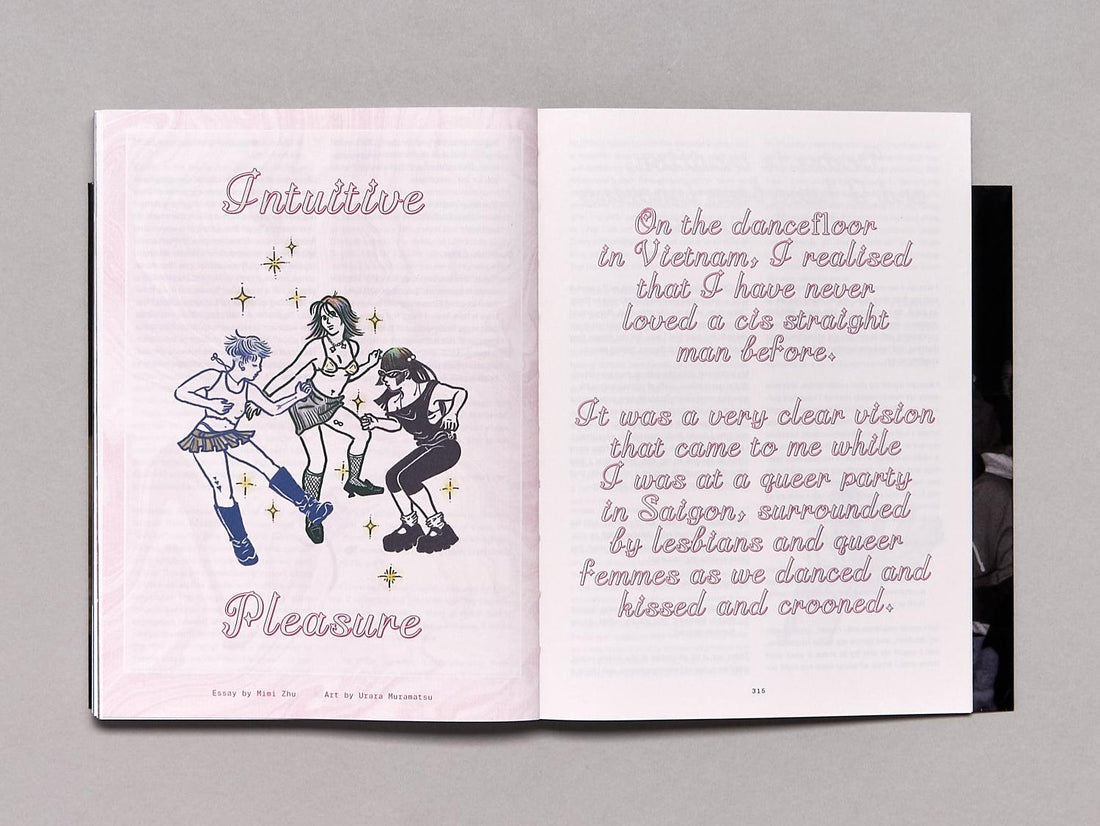 Intuitive
Pleasure
Essay by Mimi Zhu Art by Urara Muramatsu
On the dancefloor
in Vietnam, I realised
that I have never
loved a cis straight
man before.
It was a very clear vision
that came to me while
I was at a queer party
in Saigon, surrounded
by lesbians and queer
femmes as we danced and
kissed and crooned.
316